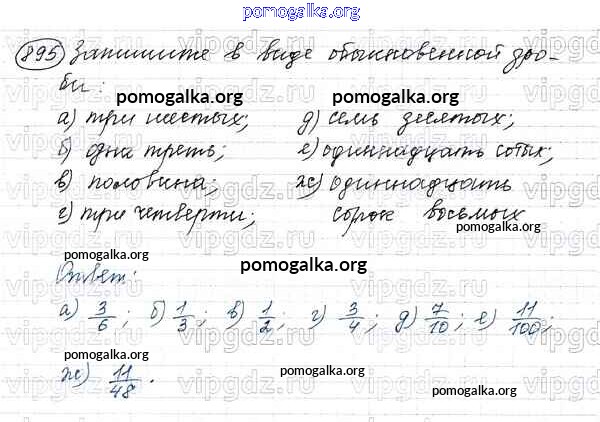 pomogalka.org
895 Запишите в виде обыкновенной дро-
би:
pomogalka.org pomogalka.org
а) три шестых; д) семь десятых;
б) одна треть; е) одиннадцать сотых;
в) половина; ж) одиннадцать
г) три четверти; сорок восьмых
pomogalka.org
Ответ: pomogalka.org
а) 3/6; б) 1/3; в) 1/2; г) 3/4; д) 7/10; е) 11/100;
pomogalka.org pomogalka.org
ж) 11/48.
pomogalka.org
vipgdz.ru